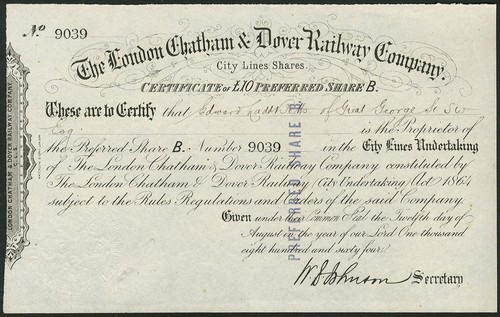 No 9039
The London Chatham & Dover Railway Company.
City Lines Shares.
CERTIFICATE OF £10 PREFERRED SHARE B.
These are to Certify that Edward Ladd Betts of Great George St SW
Esq. is the Proprietor of
the Preferred Share B. Number 9039 in the City Lines Undertaking
of The London Chatham & Dover Railway Company constituted by
The London Chatham & Dover Railway (City Undertaking) Act 1864
subject to the Rules Regulations and Orders of the said Company.
Given under their Common Seal the Twelfth day of
August in the year of our Lord One thousand
eight hundred and sixty four.
W. S. Johnson Secretary
PREFERRED SHARE B
LONDON CHATHAM & DOVER RAILWAY COMPANY